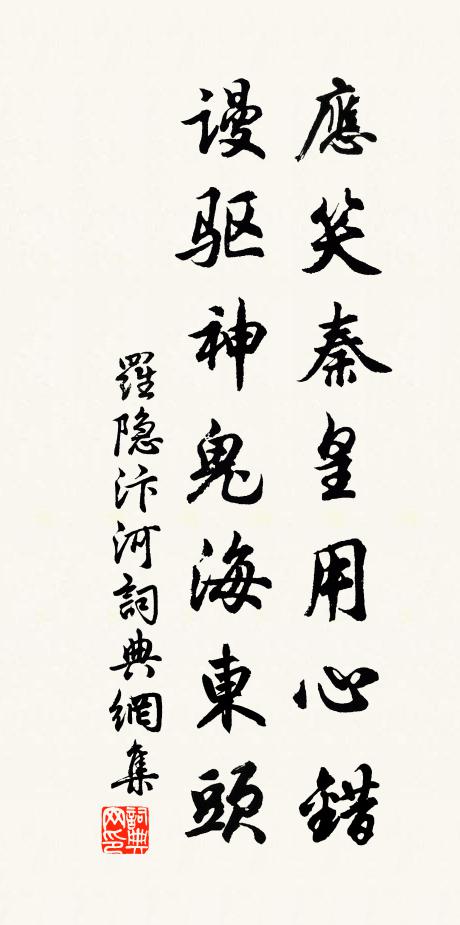 應笑秦皇用心錯
謾驱神鬼海東頭
羅隐汴河詞典網集
詞典网印